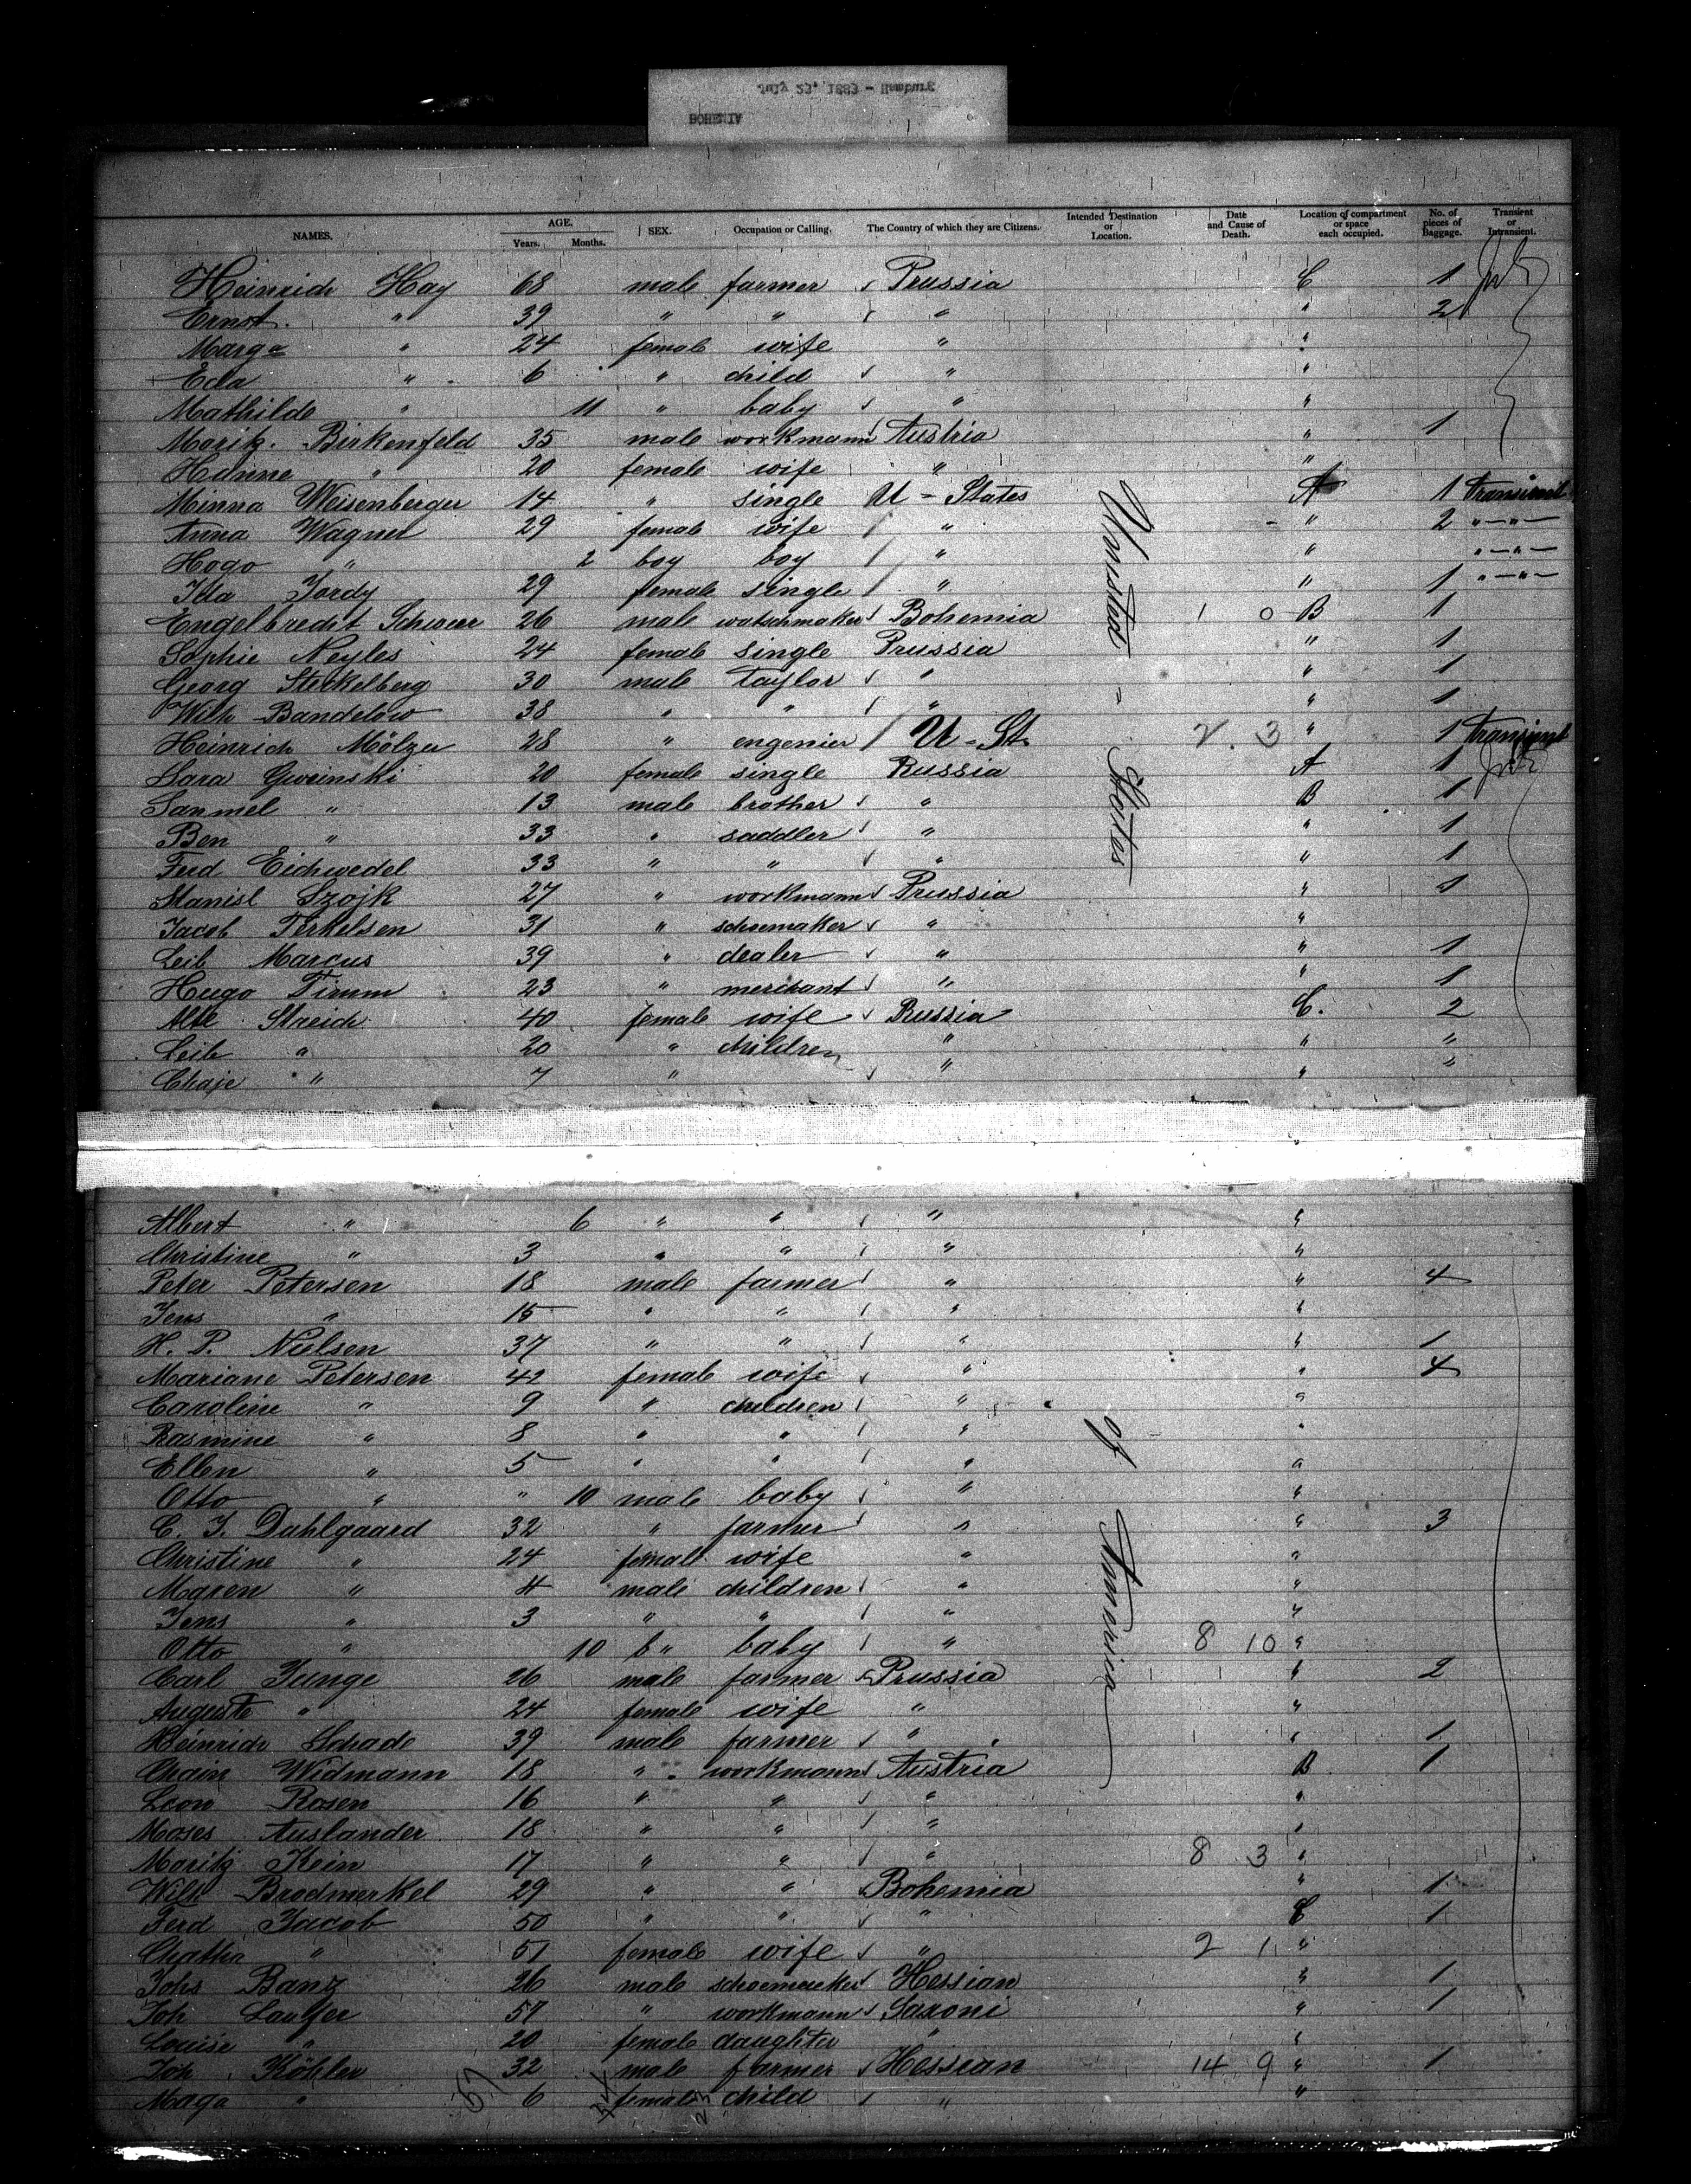 July 23, 1883 - Hamburg
BOHEMIA
NAMES. AGE. Years. Months. SEX. Occupation or Calling. The Country of which they are Citizens. Intended Destination or Location. Date and Cause of Death. Location of compartment or space each occupied. No. of pieces of Baggage. Transient or Intransient.
Heinrich Hay 68 male farmer Prussia C 1
Ernst " 39 " " " " 2
Marga " 24 female wife " "
Eda " 6 " child " "
Mathilde " 11 " baby " "
Moritz Birkenfeld 35 male workmann Austria " 1
Hanne " 20 female wife " "
Minna Weisenberger 14 " single U - States A 1 transient
Anna Wagner 29 female wife " " 2 " - " -
Hogo " 2 boy boy " " " - " -
Ida Jordy 29 female single " " 1 " - " -
Engelbrecht Schwerr 26 male watschmaker Bohemia 1 0 B 1
Sophie Neyles 24 female single Prussia " 1
Georg Steckelberg 30 male taylor " " 1
Wilh Bandelow 38 " " " " 1
Heinrich Mölzer 28 " engenier U - St. 2. 3 " 1 transient
Sara Gweinski 20 female single Russia A 1
Sammel " 13 male brother " B 1
Ben " 33 " saddler " " 1
Ferd Eichwedel 33 " " " " 1
Stanisl Szojk 27 " workmann Prussia " 1
Jacob Terkelsen 31 " schoemaker " "
Leib Marcus 39 " dealer " " 1
Hugo Timm 23 " merchant " " 1
Alte Streich 40 female wife Russia C. 2
Leib " 20 " children " " "
Chaje " 7 " " " "
United - States
Albert " 6 " " " "
Christine " 3 " " " "
Peter Petersen 18 male farmer " " 4
Jens " 15 " " " "
H. P. Nielsen 37 " " " " 1
Mariane Petersen 42 female wife " " 4
Caroline " 9 " children " "
Rasmine " 8 " " " "
Ellen " 5 " " " "
Otto " " 10 male baby " "
C. J. Dahlgaard 32 " farmer " " 3
Christine " 24 female wife " "
Maren " 4 male children " "
Jens " 3 " " " "
Otto " 10 b " baby " 8 10 "
Carl Junge 26 male farmer Prussia " 2
Auguste " 24 female wife " "
Heinrich Schade 39 male farmer " " 1
Chain Widmann 18 " workmann Austria B 1
Leon Rosen 16 " " " "
Moses Auslander 18 " " " "
Moritz Kein 17 " " " 8 3 "
Wilh Brodmerkel 29 " " Bohemia " 1
Ferd Jacob 50 " " " C 1
Chatha " 51 female wife " 2 1 "
Johs Banz 26 male schoemacker Hessian " 1
Joh Laufer 57 " workmann Saxoni " 1
Louise " 20 female daughter " "
Joh Köhler 32 male farmer Hessian 14 9 " 1
Maga " 6 female child " "
of America
57